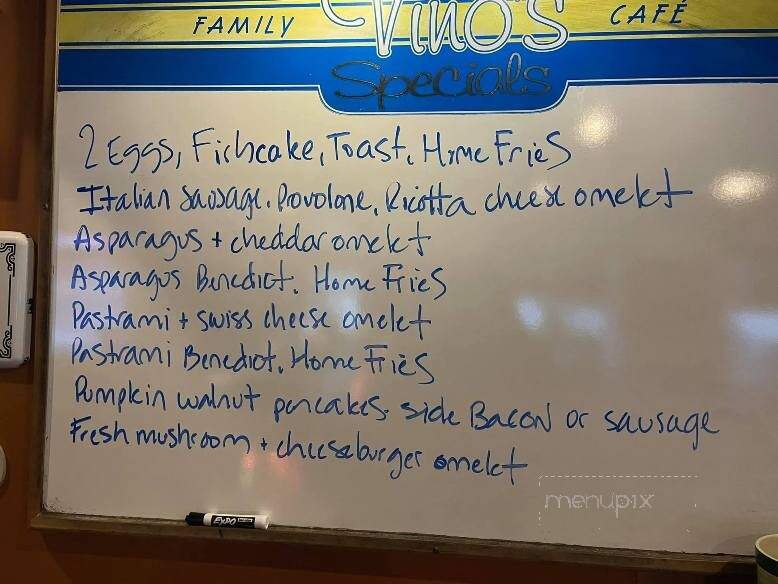 FAMILY Vino's CAFÉ
Specials
2 Eggs, Fishcake, Toast, Home Fries
Italian Sausage, Provolone, Ricotta cheese omelet
Asparagus + cheddar omelet
Asparagus Benedict, Home Fries
Pastrami + swiss cheese omelet
Pastrami Benedict, Home Fries
Pumpkin walnut pancakes. side Bacon or sausage
Fresh mushroom + cheeseburger omelet
menupix
EXPO